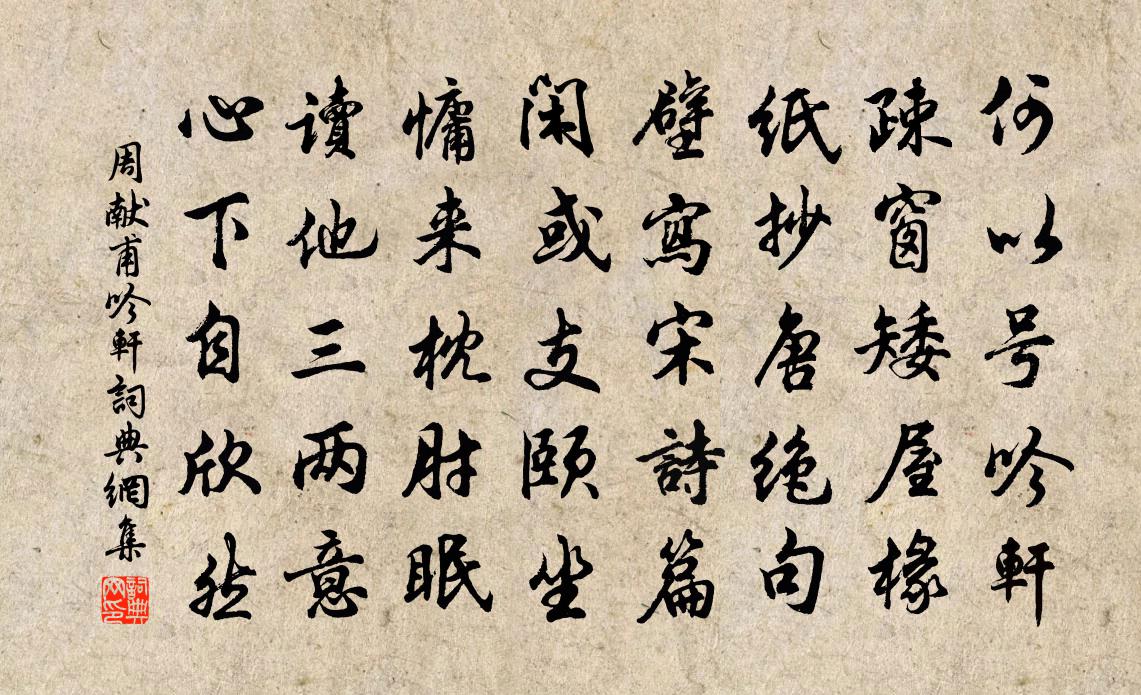 何以号吟軒
疎窗矮屋椽
紙抄唐绝句
壁寫宋詩篇
闲或支颐坐
慵来枕肘眠
讀他三两意
心下自欣然
周献甫吟軒詞典網集
詞典
网印